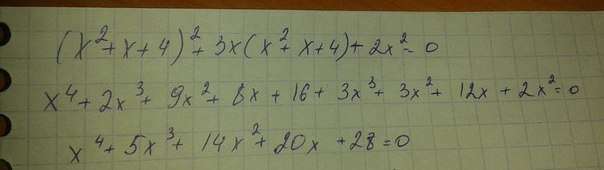 (x²+x+4)²+3x(x²+x+4)+2x²=0
x⁴+2x³+9x²+8x+16+3x³+3x²+12x+2x²=0
x⁴+5x³+14x²+20x+28=0